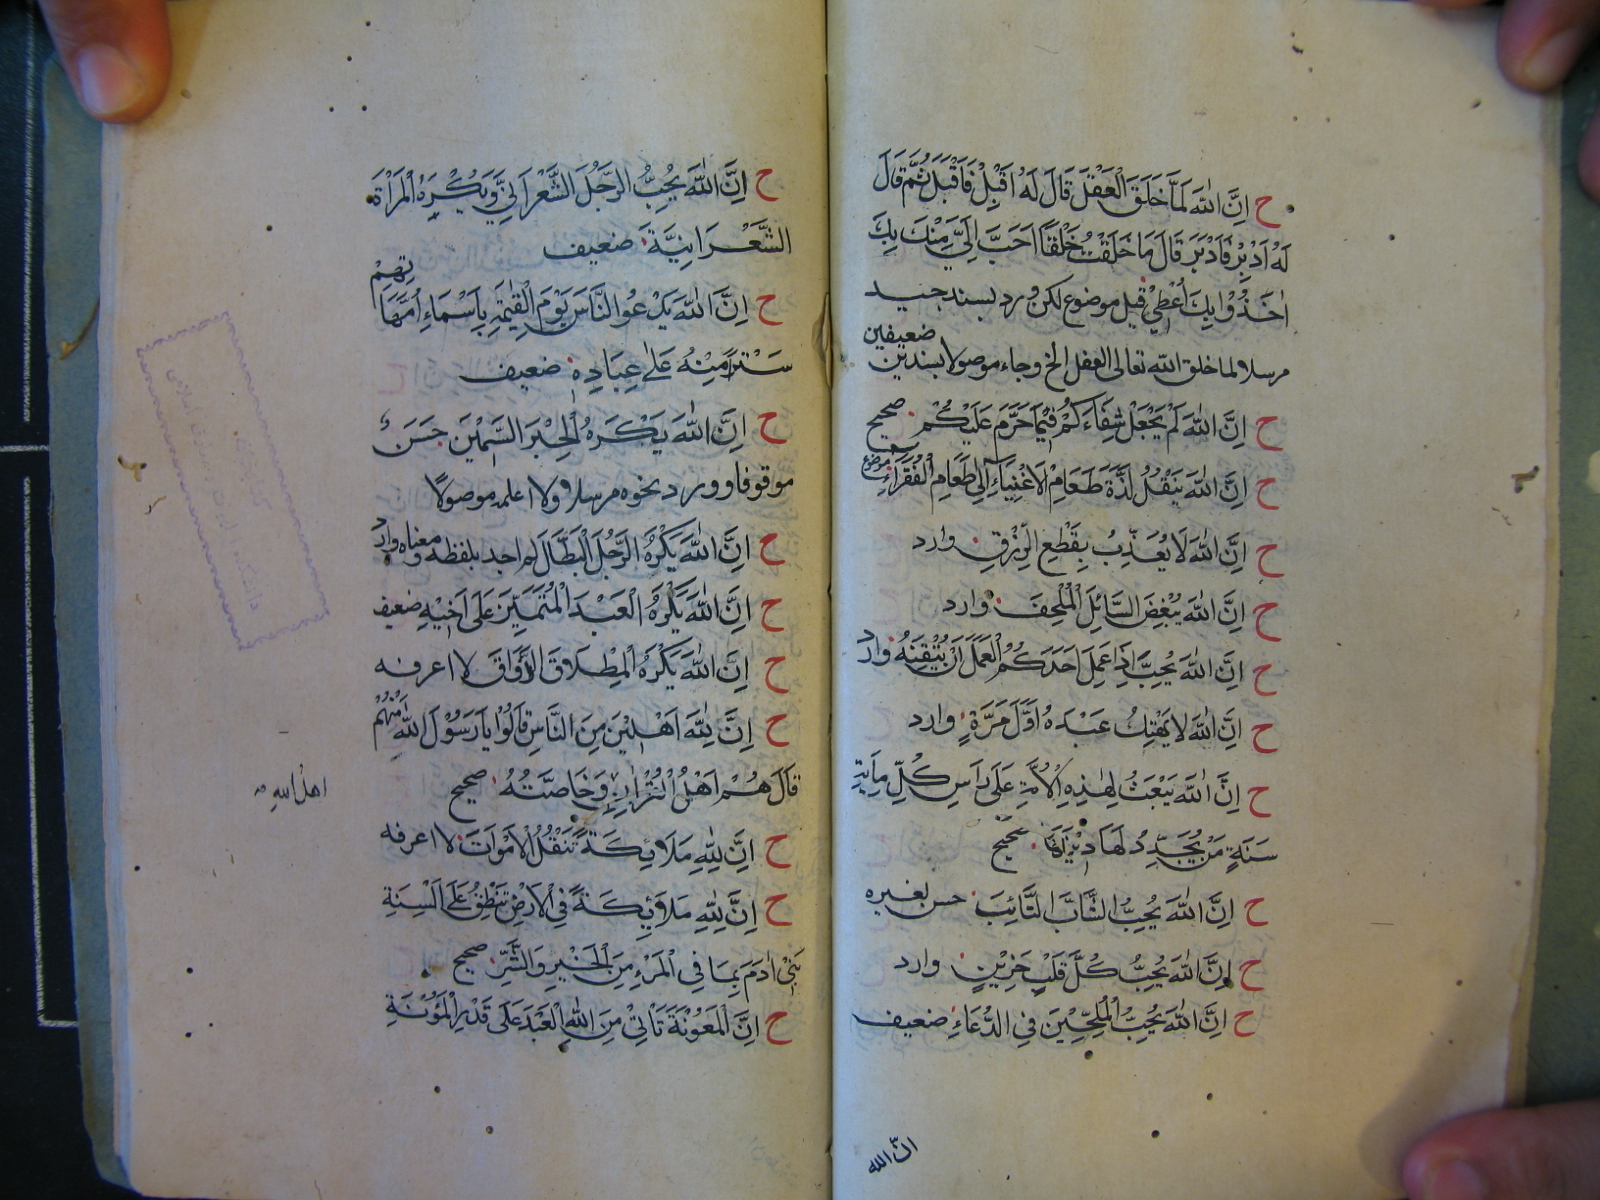 ح اِنَّ اللّٰهَ لَمَّا خَلَقَ الْعَقْلَ قَالَ لَهُ اَقْبِلْ فَاَقْبَلَ ثُمَّ قَالَ
لَهُ اَدْبِرْ فَاَدْبَرَ قَالَ مَا خَلَقْتُ خَلْقًا اَحَبَّ اِلَيَّ مِنْكَ بِكَ
اٰخُذُ وَبِكَ اُعْطِيْ قيل موضوع لكن ورد بسند جيد
مرسلا لما خلق الله تعالى العقل الخ وجاء موصولا بسندين ضعيفين
ح اِنَّ اللّٰهَ لَمْ يَجْعَلْ شِفَاءَكُمْ فِيْمَا حَرَّمَ عَلَيْكُمْ صحيح
ح اِنَّ اللّٰهَ يَنْقُلُ لَذَّةَ طَعَامِ الْاَغْنِيَاءِ اِلٰى طَعَامِ الْفُقَرَاءِ موضوع
ح اِنَّ اللّٰهَ لَا يُعَذِّبُ بِقَطْعِ الرِّزْقِ وارد
ح اِنَّ اللّٰهَ يُبْغِضُ السَّائِلَ الْمُلْحِفَ وارد
ح اِنَّ اللّٰهَ يُحِبُّ اِذَا عَمِلَ اَحَدُكُمُ الْعَمَلَ اَنْ يُتْقِنَهُ وارد
ح اِنَّ اللّٰهَ لَا يَهْتِكُ عَبْدَهُ اَوَّلَ مَرَّةٍ وارد
ح اِنَّ اللّٰهَ يَبْعَثُ لِهٰذِهِ الْاُمَّةِ عَلٰى رَاْسِ كُلِّ مِايَةِ
سَنَةٍ مَنْ يُجَدِّدُ لَهَا دِيْنَهَا صحيح
ح اِنَّ اللّٰهَ يُحِبُّ الشَّابَّ التَّائِبَ حسن لغيره
ح اِنَّ اللّٰهَ يُحِبُّ كُلَّ قَلْبٍ حَزِيْنٍ وارد
ح اِنَّ اللّٰهَ يُحِبُّ الْمُلِحِّيْنَ فِي الدُّعَاءِ ضعيف
انّ الله
ح اِنَّ اللّٰهَ يُحِبُّ الرَّجُلَ الشَّعْرَانِيَّ وَيَكْرَهُ الْمَرْاَةَ
الشَّعْرَانِيَّةَ ضعيف
ح اِنَّ اللّٰهَ يَدْعُو النَّاسَ يَوْمَ الْقِيٰمَةِ بِاَسْمَاءِ اُمَّهَاتِهِمْ
سَتْرًا مِنْهُ عَلٰى عِبَادِهِ ضعيف
ح اِنَّ اللّٰهَ يَكْرَهُ الْحِبْرَ السَّمِيْنَ حَسَنٌ
موقوفا وورد نحوه مرسلا ولا اعلمه موصولًا
ح اِنَّ اللّٰهَ يَكْرَهُ الرَّجُلَ الْبَطَّالَ لم اجد بلفظه ومعناه وارد
ح اِنَّ اللّٰهَ يَكْرَهُ الْعَبْدَ الْمُتَمَيِّزَ عَلٰى اَخِيْهِ ضعيف
ح اِنَّ اللّٰهَ يَكْرَهُ الْمِطْلَاقَ الذَّوَّاقَ لا اعرفه
ح اِنَّ لِلّٰهِ اَهْلِيْنَ مِنَ النَّاسِ قَالُوْا يَا رَسُوْلَ اللّٰهِ مَنْ هُمْ
قَالَ هُمْ اَهْلُ الْقُرْاٰنِ وَخَاصَّتُهُ صحيح
اهل الله
ح اِنَّ لِلّٰهِ مَلَائِكَةً تَنْقُلُ الْاَمْوَاتَ لا اعرفه
ح اِنَّ لِلّٰهِ مَلَائِكَةً فِي الْاَرْضِ تَنْطِقُ عَلٰى اَلْسِنَةِ
بَنِيْ اٰدَمَ بِمَا فِي الْمَرْءِ مِنَ الْخَيْرِ وَالشَّرِّ صحيح
ح اِنَّ الْمَعُوْنَةَ تَاْتِيْ مِنَ اللّٰهِ الْعَبْدَ عَلٰى قَدْرِ الْمَؤُنَةِ